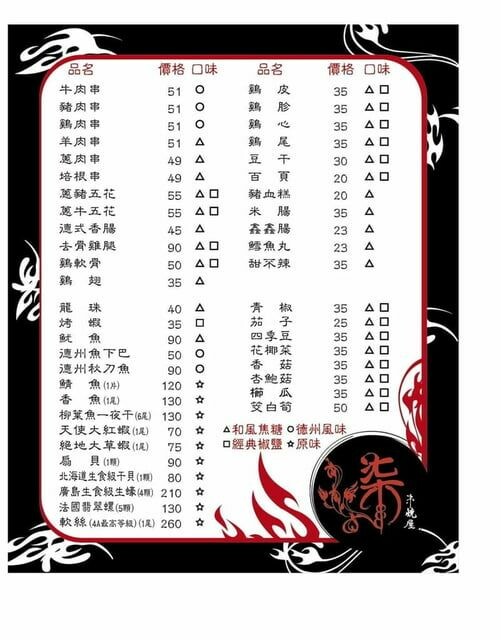 品名 價格 口味
牛肉串 51 ○
豬肉串 51 ○
鷄肉串 51 ○
羊肉串 51 △
蔥肉串 49 △
培根串 49 △
蔥豬五花 55 △□
蔥牛五花 55 △□
德式香腸 45 △
去骨雞腿 90 △□
鷄軟骨 50 △□
鷄翅 35 △
龍珠 40 △
烤蝦 35 □
魷魚 90 △
德州魚下巴 50 ○
德州秋刀魚 90 ○
鯖魚(1片) 120 ☆
香魚(1尾) 130 ☆
柳葉魚一夜干(6尾) 130 ☆
天使大紅蝦(1尾) 70 ☆
絕地大草蝦(1尾) 75 ☆
扇貝(1顆) 90 ☆
北海道生食級干貝(1顆) 80 ☆
廣島生食級生蠔(4顆) 210 ☆
法國翡翠螺(5顆) 130 ☆
軟絲(4A最高等級)(1尾) 260 ☆
品名 價格 口味
鷄皮 35 △□
鷄胗 35 △□
鷄心 35 △□
鷄尾 35 △□
豆干 30 △□
百頁 20 △□
豬血糕 20 △
米腸 35 △
鑫鑫腸 23 △
鱈魚丸 23 △
甜不辣 35 △
青椒 35 △□
茄子 25 △□
四季豆 35 △□
花椰菜 35 △□
香菇 35 △□
杏鮑菇 35 △□
櫛瓜 35 △□
茭白筍 50 △□
△和風焦糖 ○德州風味
□經典椒鹽 ☆原味
柒
串燒屋